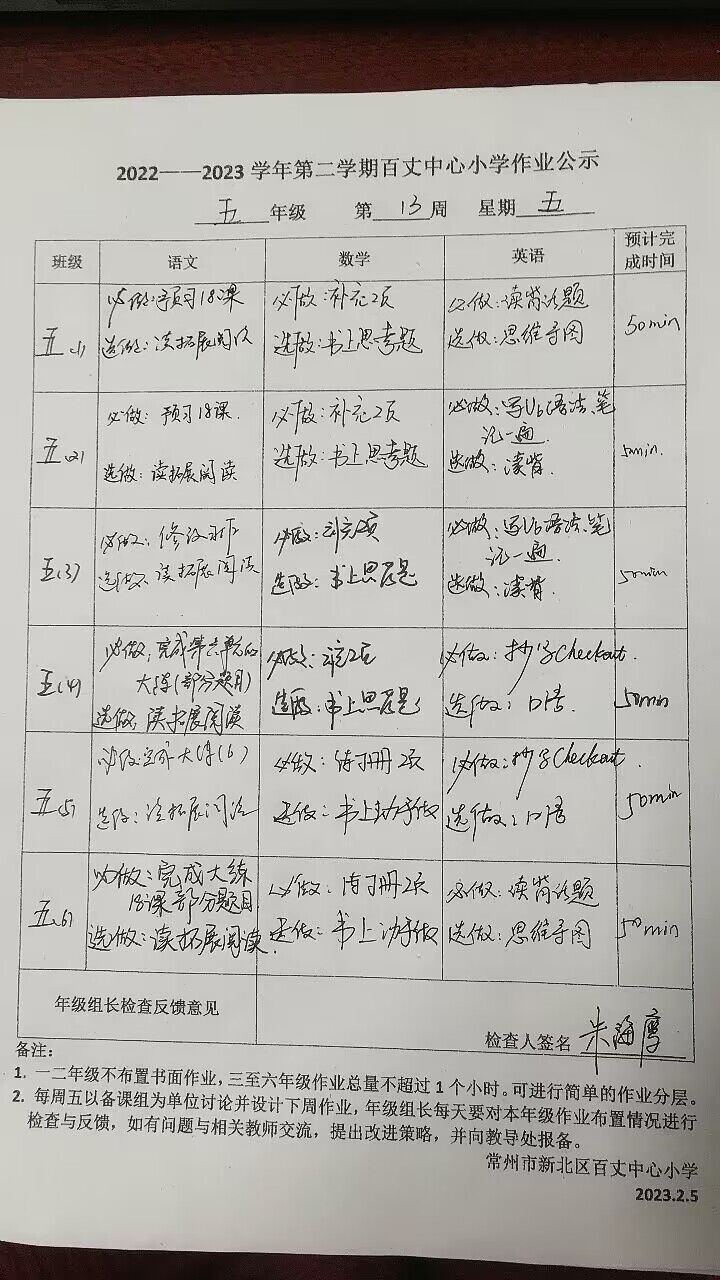 2022——2023 学年第二学期百丈中心小学作业公示
五 年级 第 13 周 星期 五
班级 语文 数学 英语 预计完成时间
五(1)
必做:预习18课
选做:读拓展阅读
必做:补充2页
选做:书上思考题
必做:读背话题
选做:思维导图
50min
五(2)
必做:预习18课.
选做:读拓展阅读
必做:补充2页
选做:书上思考题
必做:写U6语法笔
记一遍.
选做:读背.
5min.
五(3)
必做:修改习作
选做:读拓展阅读
必做:补充页
选做:书上思考题
必做:写U6语法笔
记一遍.
选做:读背.
50min
五(4)
必做:完成第六单元的
大练(部分题目)
选做:读拓展阅读
必做:补充2页
选做:书上思考题
必做:抄写Checkout.
选做:口语.
50min
五(5)
必做:完成大练(6)
选做:读拓展阅读
必做:练习册2页
选做:书上动手做
必做:抄写Checkout.
选做:口语
50min
五(6)
必做:完成大练
18课部分题目
选做:读拓展阅读.
必做:练习册2页
选做:书上动手做
必做:读背话题
选做:思维导图
50min
年级组长检查反馈意见
检查人签名 朱海
备注:
1. 一二年级不布置书面作业,三至六年级作业总量不超过 1 个小时。可进行简单的作业分层。
2. 每周五以备课组为单位讨论并设计下周作业,年级组长每天要对本年级作业布置情况进行
检查与反馈,如有问题与相关教师交流,提出改进策略,并向教导处报备。
常州市新北区百丈中心小学
2023.2.5